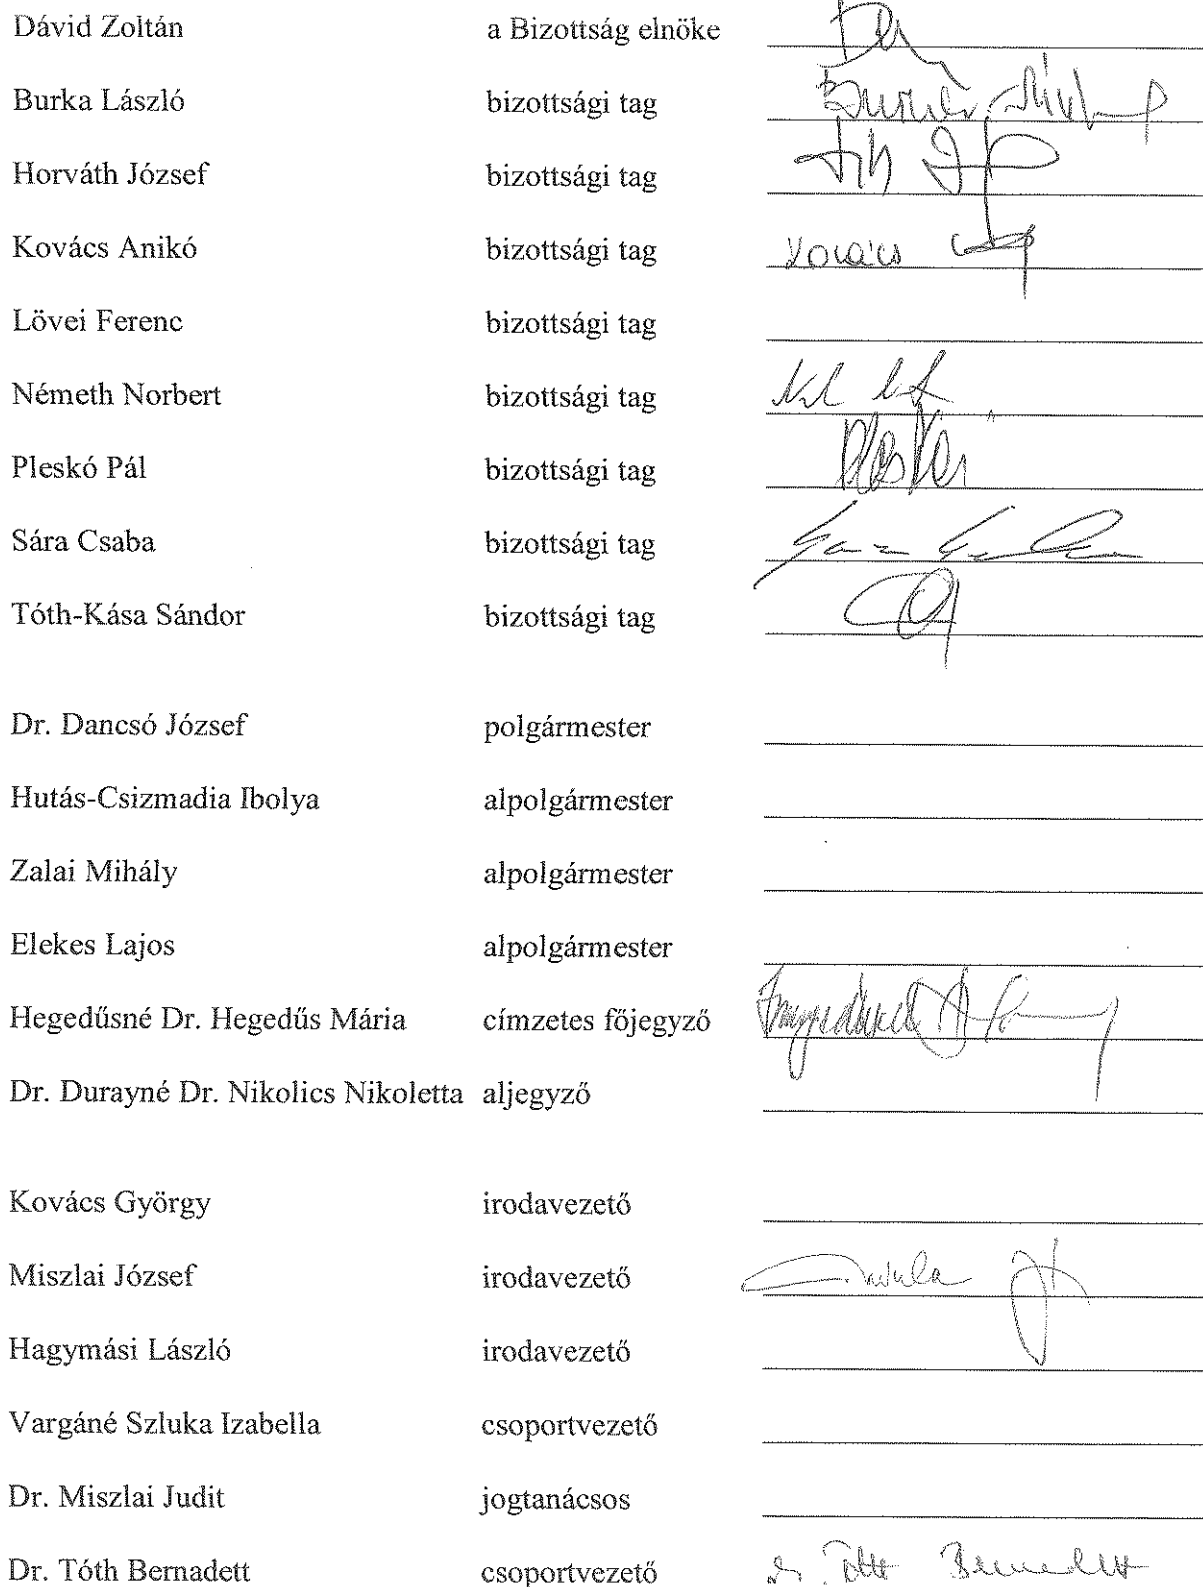 Dávid Zoltán a Bizottság elnöke
Burka László bizottsági tag
Horváth József bizottsági tag
Kovács Anikó bizottsági tag Kovács
Lövei Ferenc bizottsági tag
Németh Norbert bizottsági tag
Pleskó Pál bizottsági tag
Sára Csaba bizottsági tag
Tóth-Kása Sándor bizottsági tag
Dr. Dancsó József polgármester
Hutás-Csizmadia Ibolya alpolgármester
Zalai Mihály alpolgármester
Elekes Lajos alpolgármester
Hegedűsné Dr. Hegedűs Mária címzetes főjegyző
Dr. Durayné Dr. Nikolics Nikoletta aljegyző
Kovács György irodavezető
Miszlai József irodavezető
Hagymási László irodavezető
Vargáné Szluka Izabella csoportvezető
Dr. Miszlai Judit jogtanácsos
Dr. Tóth Bernadett csoportvezető Dr. Tóth Bernadett